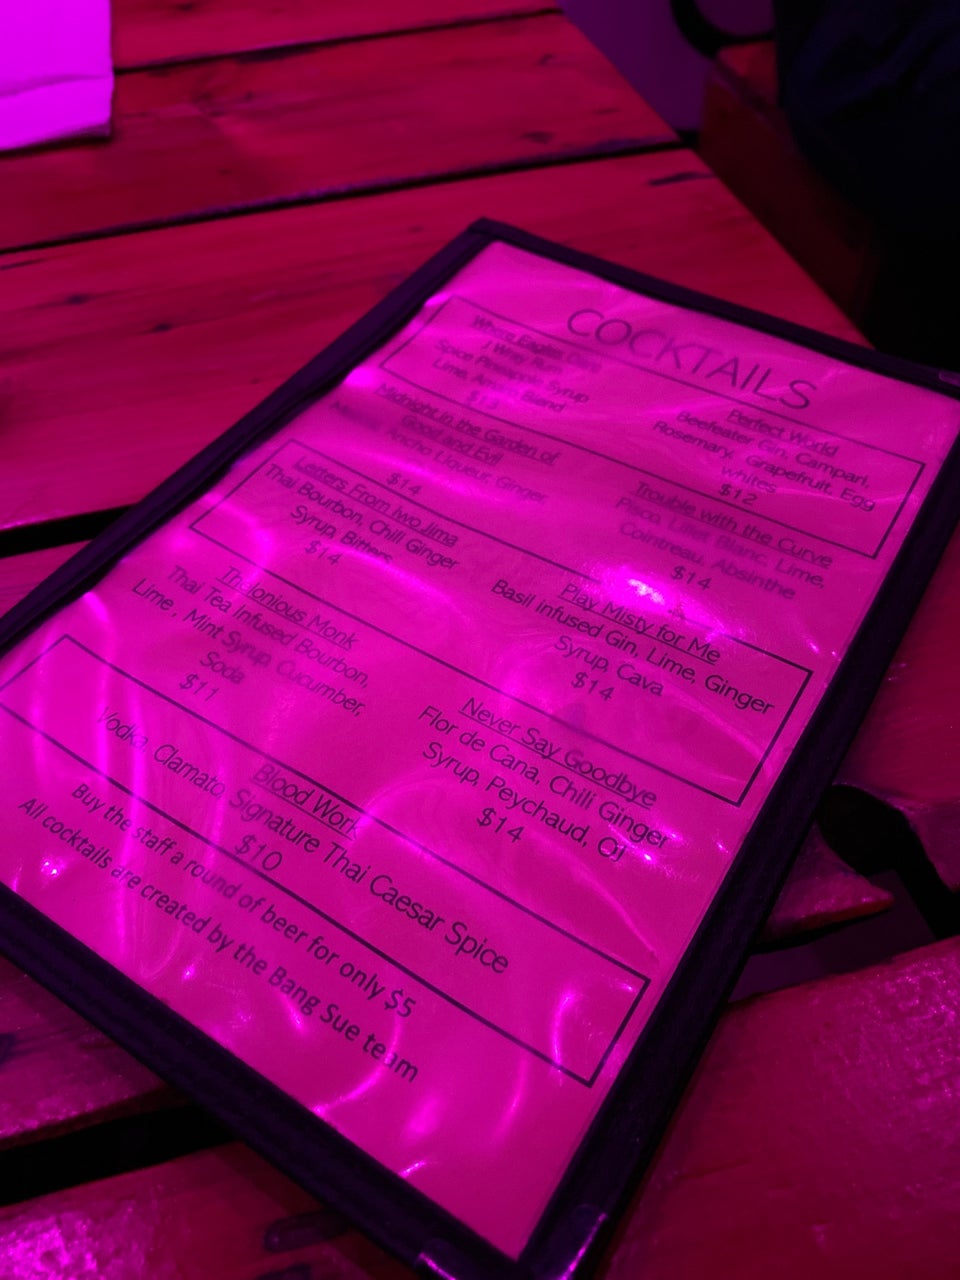 COCKTAILS
Where Eagles Dare
J Wray Rum
Spice Pineapple Syrup
Lime,
$13
Perfect World
Beefeater Gin, Campari,
Rosemary, Grapefruit, Egg
whites
$12
Midnight in the Garden of
Good and Evil
Ancho Liqueur, Ginger
$14
Trouble with the Curve
Pisco, Lillet Blanc, Lime,
Cointreau, Absinthe
$14
Letters From Iwo Jima
Thai Bourbon, Chili Ginger
Syrup, Bitters
$14
Play Misty for Me
Basil Infused Gin, Lime, Ginger
Syrup, Cava
$14
Thelonious Monk
Thai Tea Infused Bourbon,
Lime , Mint Syrup, Cucumber,
Soda
$11
Never Say Goodbye
Flor de Cana, Chili Ginger
Syrup, Peychaud, OJ
$14
Blood Work
Vodka, Clamato, Signature Thai Caesar Spice
$10
Buy the staff a round of beer for only $5
All cocktails are created by the Bang Sue team